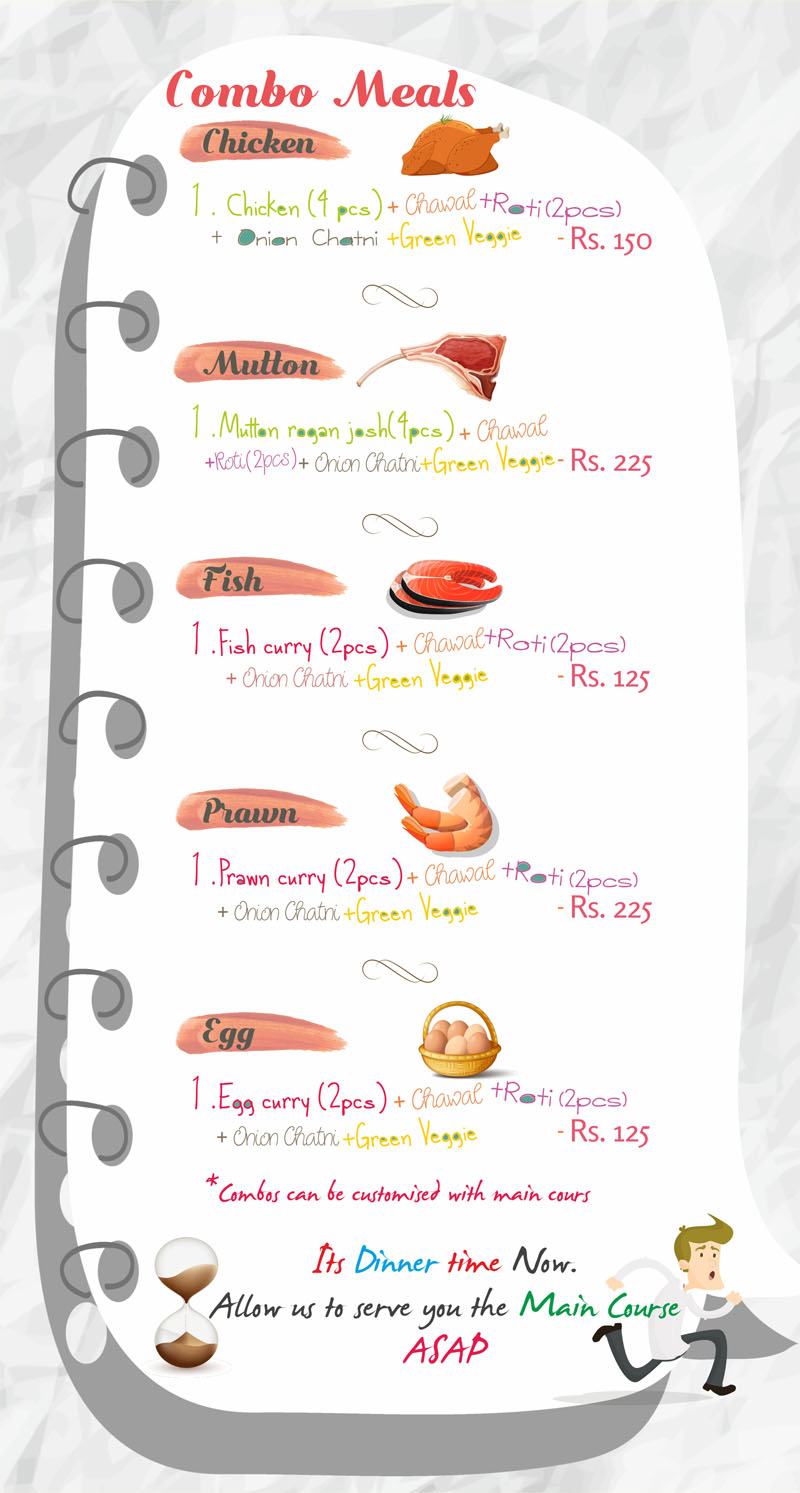 Combo Meals
Chicken
1. Chicken (4 pcs) + Chawal +Roti (2pcs)
+ Onion Chatni +Green Veggie - Rs. 150
Mutton
1.Mutton rogan josh(4pcs) + Chawal
+Roti(2pcs)+ Onion Chatni+Green Veggie- Rs. 225
Fish
1.Fish curry (2pcs) + Chawal+Roti (2pcs)
+ Onion Chatni +Green Veggie - Rs. 125
Prawn
1.Prawn curry (2pcs) + Chawal +Roti (2pcs)
+ Onion Chatni +Green Veggie - Rs. 225
Egg
1.Egg curry (2pcs) + Chawal +Roti (2pcs)
+ Onion Chatni +Green Veggie - Rs. 125
*Combos can be customised with main cours
Its Dinner time Now.
Allow us to serve you the Main Course
ASAP